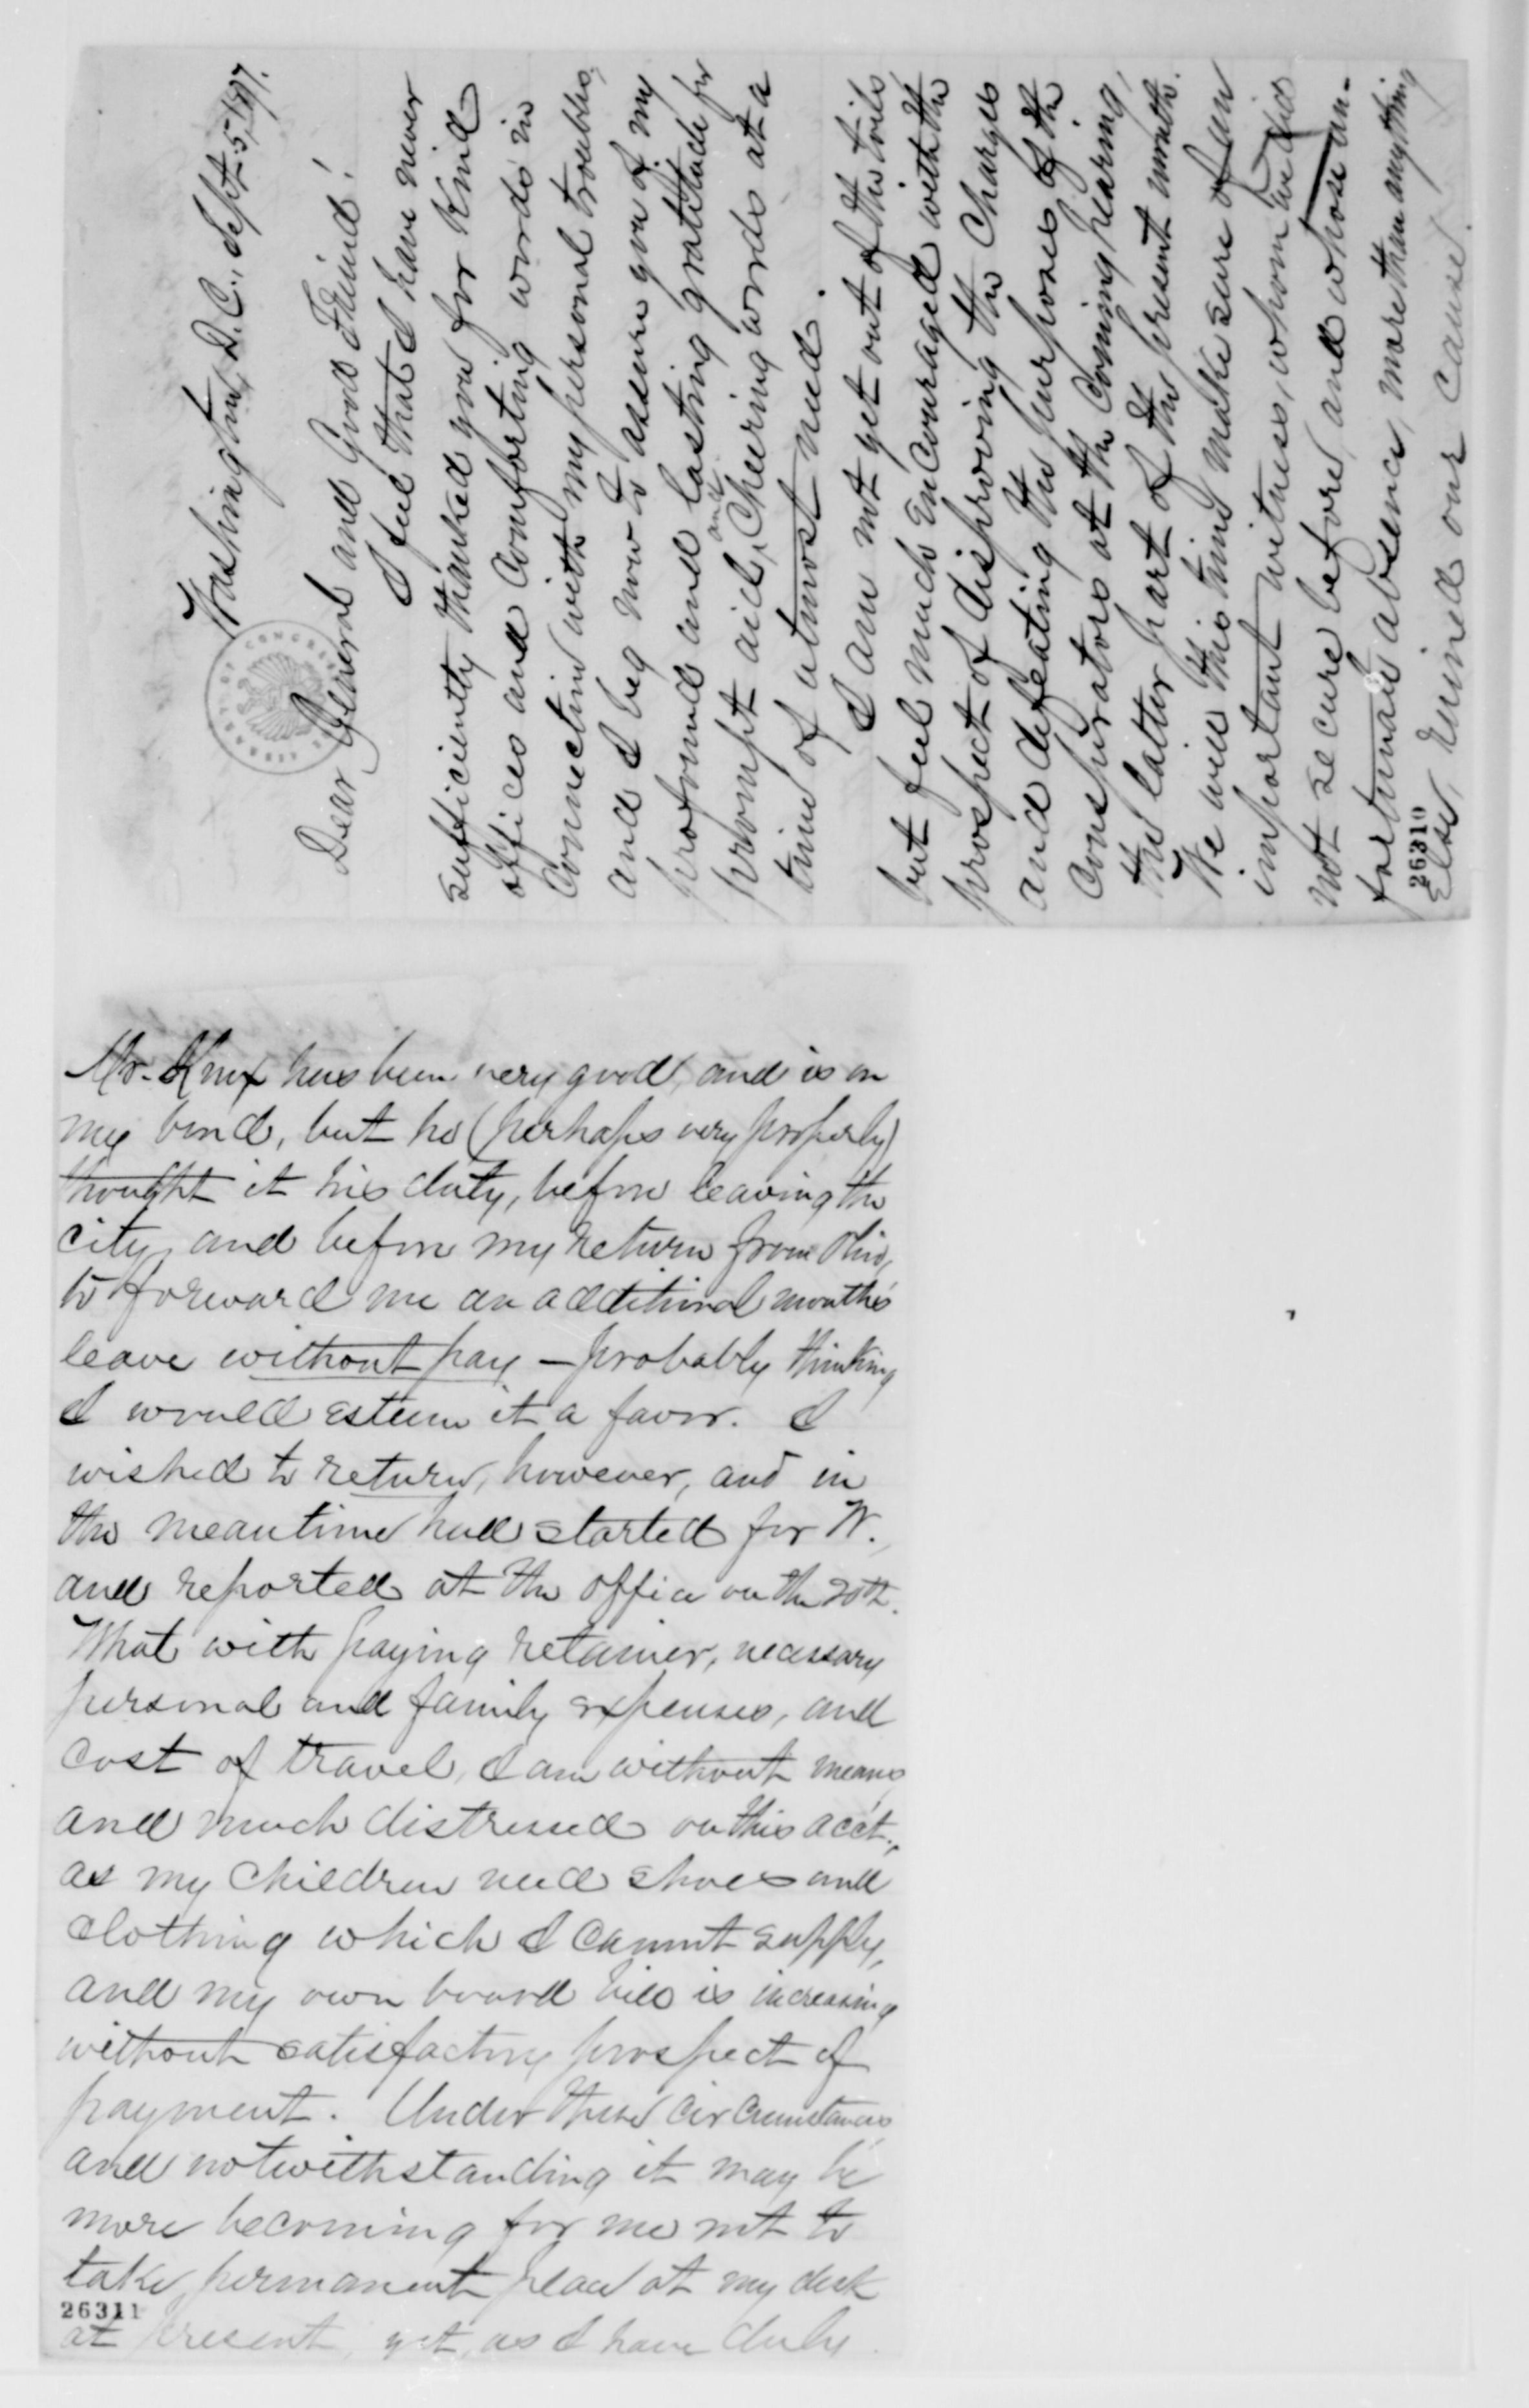 Washington, D.C., Sept. 5,
Dear General and Good Friend!
I feel that I have never
sufficiently thanked you for kind
offices and comforting words in
connection with my personal troubles,
and I beg now to assure you of my
profound and lasting gratitude for
prompt aid, and cheering words at a
time of utmost need.
I am not yet out of the toils
but feel much encouraged with the
prospect of disproving the charges
and defeating the purposes of the
conspirators at the coming hearing,
the latter part of the present month.
We will this time make sure of an
important witness, whom we did
not secure before, and whose un-
fortunate absence, more than anything
else, ruined our cause.
26310
Mr. Knox has been very good, and is on
my bond, but he (perhaps very properly)
thought it his duty, before leaving the
city, and before my return from Ohio,
to forward me an additional month's
leave without pay – probably thinking
I would esteem it a favor. I
wished to return, however, and in
the meantime had started for W.,
and reported at the office on the 20th.
What with paying retainer, necessary
personal and family expenses, and
cost of travel, I am without means
and much distressed on this acct.,
as my children need shoes and
clothing which I cannot supply,
and my own board bill is increasing
without satisfactory prospect of
payment. Under these circumstances
and notwithstanding it may be
more becoming for me not to
take permanent place at my desk
26311
at present, yet, as I have duly